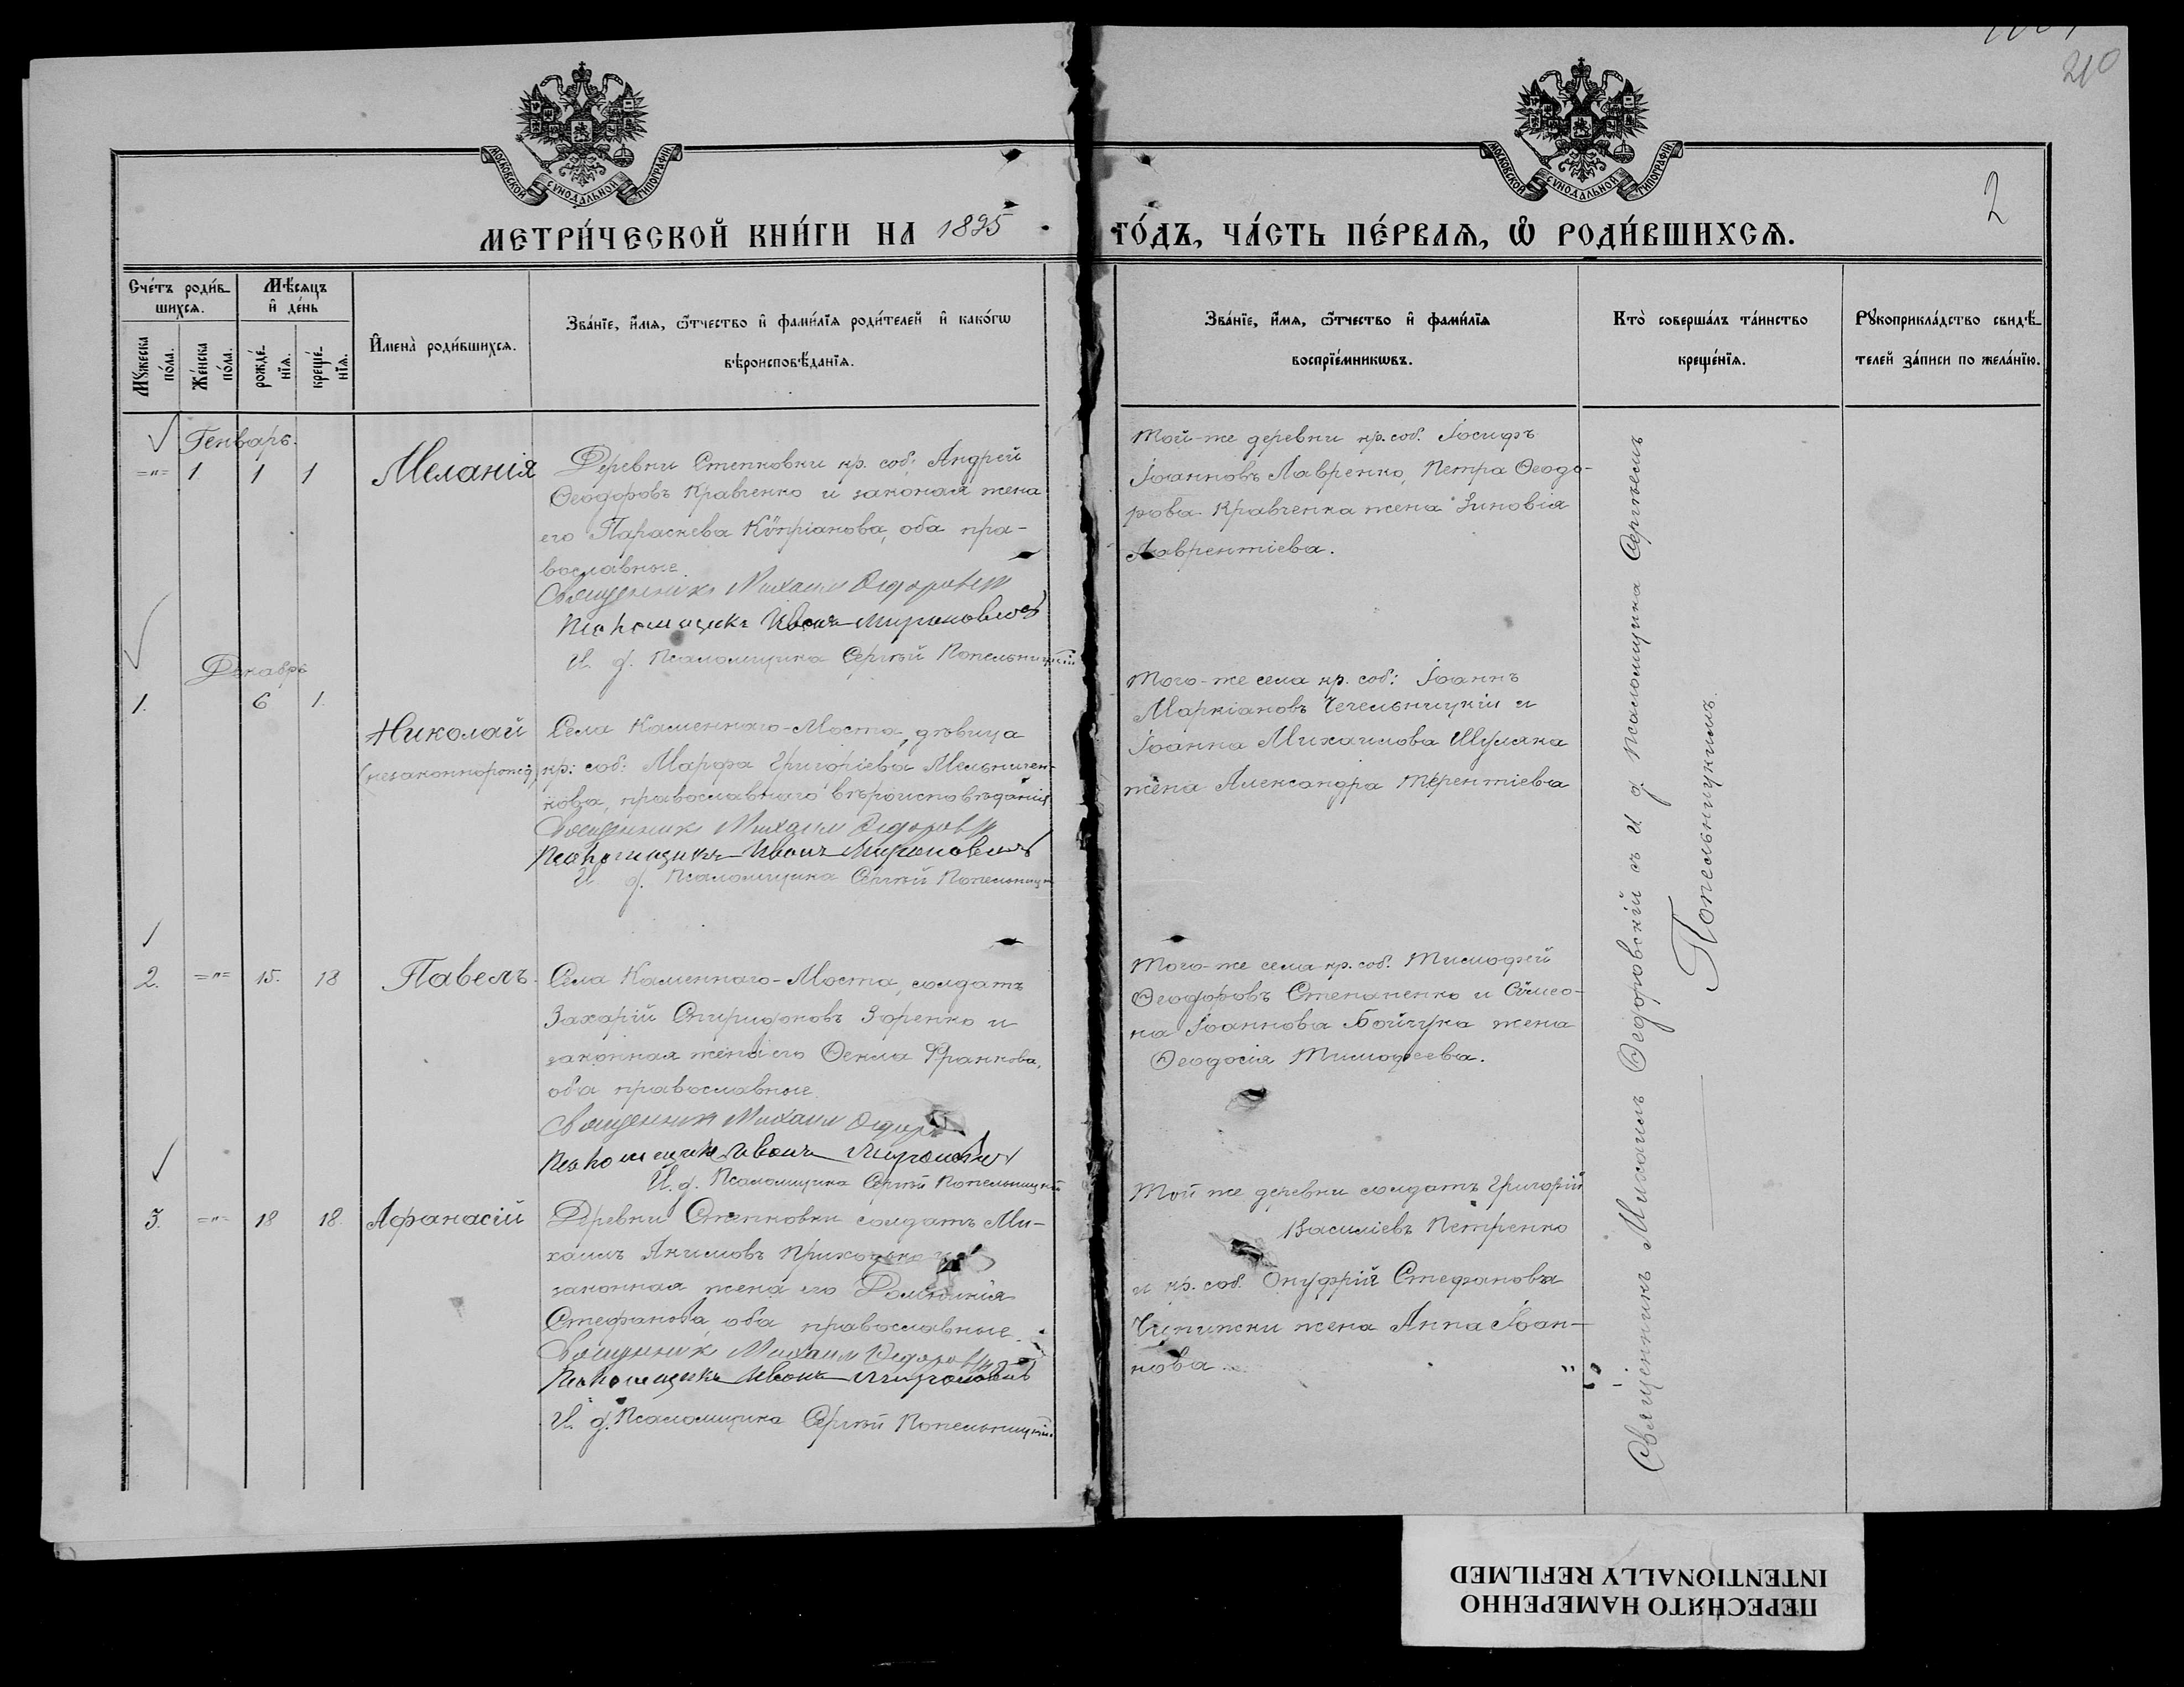 210
2
МОСКОВСКОЙ СѴНОДАЛЬНОЙ ТИПОГРАФІИ
МОСКОВСКОЙ СѴНОДАЛЬНОЙ ТИПОГРАФІИ
МЕТРИ́ЧЕСКОЙ КНИ́ГИ НА 1895 ГО́ДЪ, ЧА́СТЬ ПЕ́РВАѦ, Ѡ РОДИ́ВШИХСѦ.
Сче́тъ роди́в-
шихсѧ.
Мꙋжеска по́ла.
Же́нска по́ла.
Мѣ́сяцъ
и҆ де́нь
рожде́-
нїѧ.
креще́-
нїѧ.
И҆мена̀ роди́вшихсѧ.
Зва́нїе, и҆́мѧ, ѻ҆́тчество и҆ фами́лїѧ роди́телей и҆ како́гѡ
вѣроисповѣ́данїѧ.
Зва́нїе, и҆́мѧ, ѻ҆́тчество и҆ фами́лїѧ
воспрїе́мникѡвъ.
Кто̀ соверша́лъ та́инство
креще́нїѧ.
Рꙋкоприкла́дство свидѣ́-
телей за́писи по жела́нїю.
Генварь.
=„= 1 1 1 Меланія
Деревни Степковки кр. соб: Андрей
Ѳеодоровъ Кравченко и законая жена
его Параскева Кѵпріанова, оба пра-
вославные
Священникъ Михаилъ
Псаломщикъ Иванъ Мироновъ
И. д. Псаломщика Сергѣй Попельницкій
Той-же деревни кр. соб. Іосифъ
Іоанновъ Лавренко, Петра Ѳеодо-
рова Кравченка жена Зиновія
Лаврентіева.
Декабрь
1. 6 1.
Николай
(незаконнорожд.)
Села Каменнаго-Моста, дѣвица
кр: соб: Марфа Григоріева Мельничен-
кова, православнаго вѣроисповѣданія
Священникъ Михаилъ
Псаломщикъ Иванъ
И д. Псаломщика Сергѣй Попельницк
Того-же села кр. соб: Іоаннъ
Маркіановъ Чечельницкій и
Іоанна Михаилова Шуляка
жена Александра Терентіева
2. =„= 15. 18 Павелъ.
Села Каменнаго-Моста, солдатъ
Захарій Спиридоновъ Зоренко и
законная жена его Ѳекла Франкова,
оба православные
Священникъ Михаилъ
Псаломщикъ Иванъ
И. д. Псаломщика Сергѣй Попельницкій
Того-же села кр. соб. Тимофей
Ѳеодоровъ Степаненко и Сѵмео-
на Іоаннова Бойчука жена
Ѳеодосія Тимофеева.
3. =„= 18 18. Афанасій
Деревни Степковки солдатъ Ми-
хаилъ Акимовъ Приходько и
законная жена его Домникія
Стефанова, оба православные.
Священникъ Михаилъ
Псаломщикъ Иванъ
И. д. Псаломщика Сергѣй Попельницкій
Той же деревни солдатъ Григорій
Василіевъ Петренко
и кр. соб. Онуфрій Стефанова
жена Анна Іоан-
нова
Священникъ Михаилъ Ѳедоровскій съ И д Псаломщика Сергѣемъ
Попельницкимъ
ПЕРЕСНЯТО НАМЕРЕННО
INTENTIONALLY REFILMED